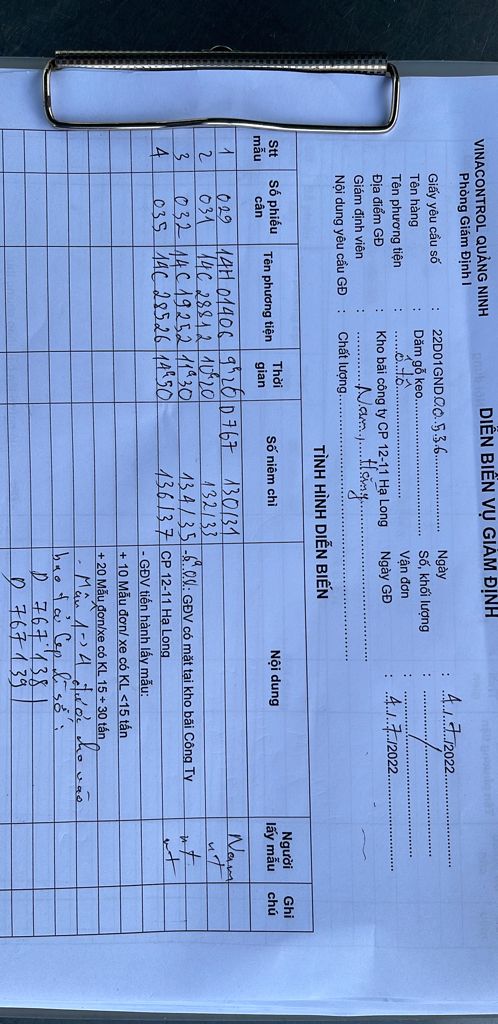 VINACONTROL QUẢNG NINH
Phòng Giám Định I
DIỄN BIẾN VỤ GIÁM ĐỊNH
Giấy yêu cầu số : 22D01GND00536 Ngày : 4/7/2022
Tên hàng : Dăm gỗ keo Số, khối lượng : /
Tên phương tiện : ô tô Vận đơn :
Địa điểm GĐ : Kho bãi công ty CP 12-11 Hạ Long Ngày GĐ : 4/7/2022
Giám định viên : Nam, Hồng
Nội dung yêu cầu GĐ : Chất lượng
TÌNH HÌNH DIỄN BIẾN
Stt mẫu Số phiếu cân Tên phương tiện Thời gian Số niêm chì Nội dung Người lấy mẫu Ghi chú
1 029 14H 01406 9h26 D767 130/31 Nam
2 031 14C 28812 10h20 132/33 nt
3 032 14C 19252 11h30 134/35 : GĐV có mặt tại kho bãi Công Ty nt
4 035 14C 28526 14h50 136/37 CP 12-11 Hạ Long nt
- GĐV tiến hành lấy mẫu:
+ 10 Mẫu đơn/ xe có KL <15 tấn
+ 20 Mẫu đơn/xe có KL 15 ÷ 30 tấn
- Mẫu 1 → 4 được cho vào
bao số:
D 767 138
D 767 139